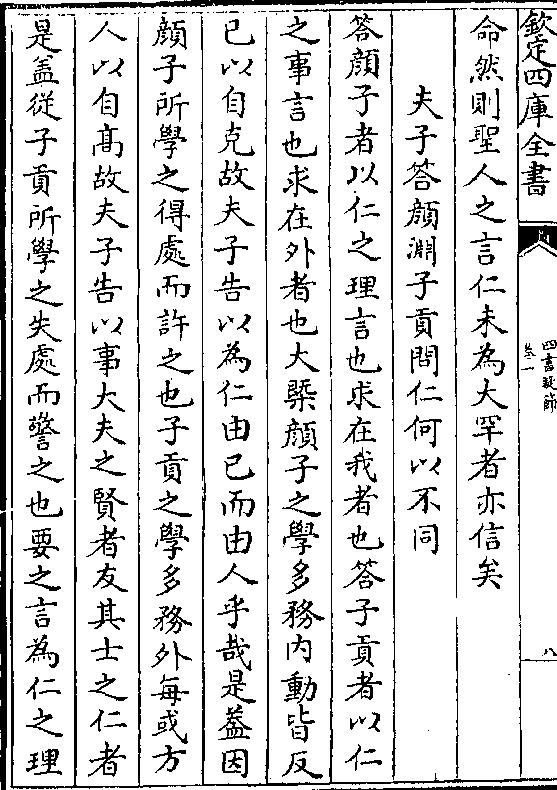 欽定四庫全書
四書疑節
卷一
八
命然則聖人之言仁未為大罕者亦信矣
夫子答顔淵子貢問仁何以不同
答顔子者以仁之理言也求在我者也答子貢者以仁
之事言也求在外者也大槩顔子之學多務内動皆反
已以自克故夫子告以為仁由已而由人乎哉是葢因
顔子所學之得處而許之也子貢之學多務外每或方
人以自髙故夫子告以事大夫之賢者友其士之仁者
是葢從子貢所學之失處而警之也要之言為仁之理